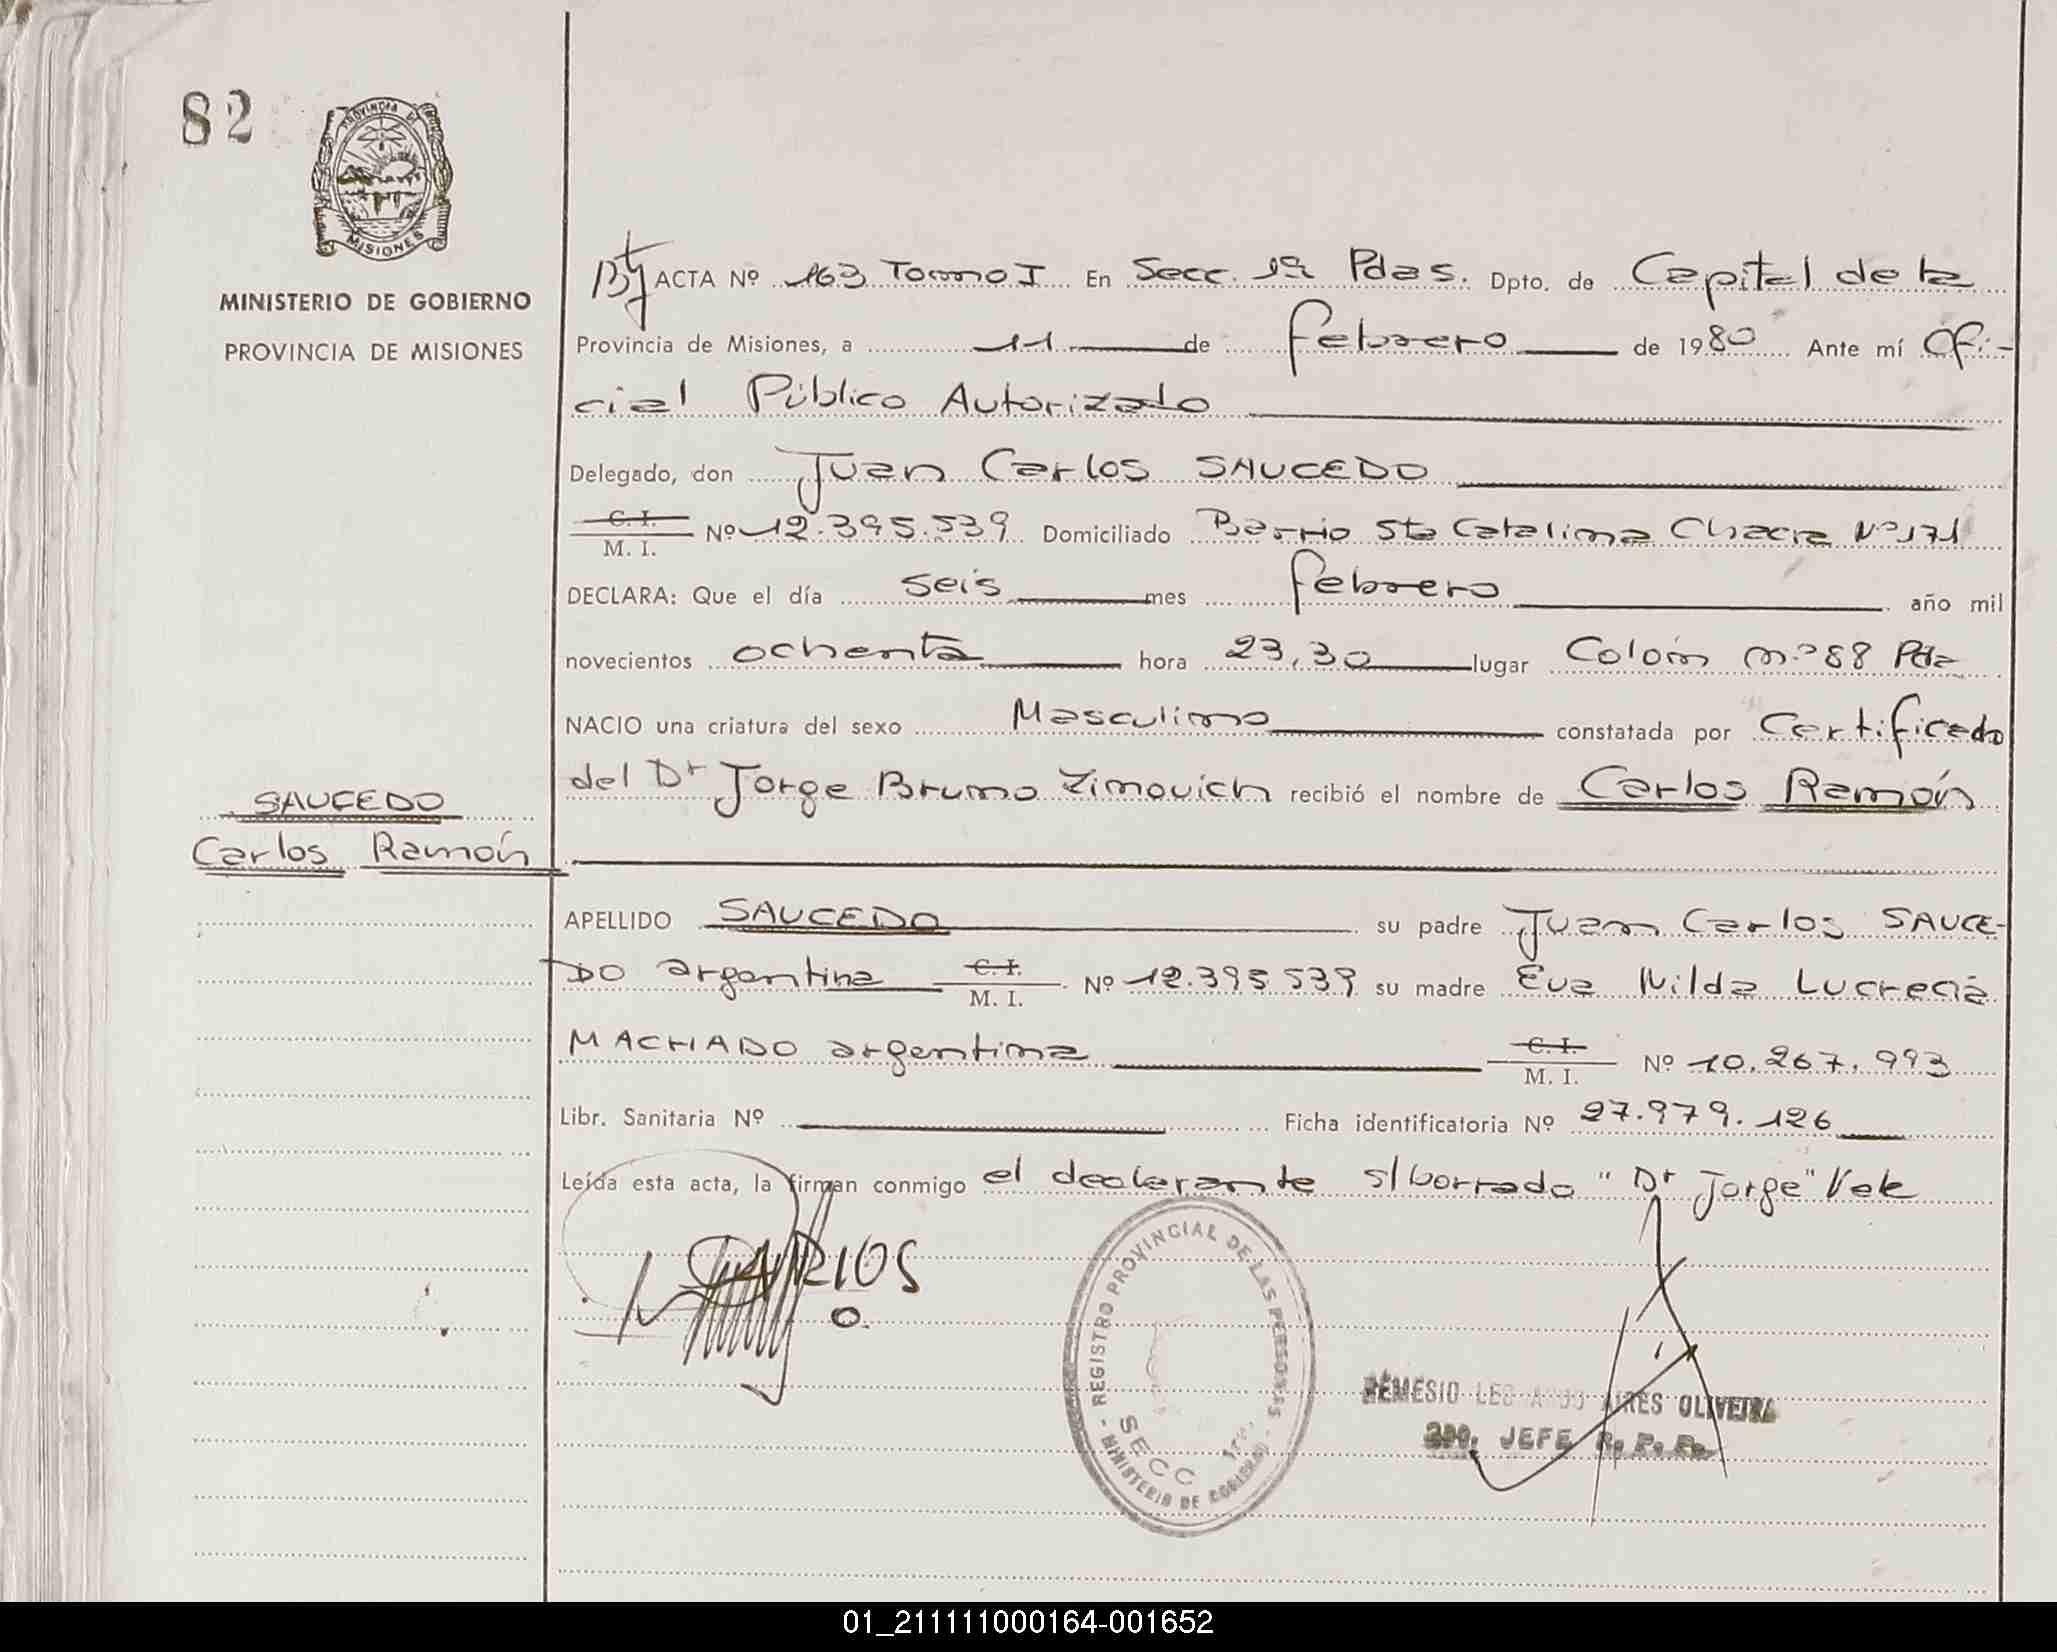 82
PROVINCIA DE
MISIONES
MINISTERIO DE GOBIERNO
PROVINCIA DE MISIONES
SAUCEDO
Carlos Ramón
ACTA Nº 163 Tomo I En Secc. 1ª Pdas. Dpto. de Capital de la
Provincia de Misiones, a 11 de febrero de 1980 Ante mí Ofi-
cial Público Autorizado
Delegado, don Juan Carlos SAUCEDO
C. I.
M. I. Nº 12.395.539 Domiciliado Barrio Sta Catalina Chacra Nº 171
DECLARA: Que el día seis mes febrero año mil
novecientos ochenta hora 23,30 lugar Colón nº 88 Pdas
NACIO una criatura del sexo Masculino constatada por Certificado
del Dr Jorge Bruno Zimovich recibió el nombre de Carlos Ramón
APELLIDO SAUCEDO su padre Juan Carlos SAUCE-
DO argentina C. I. M. I. Nº 12.395.539 su madre Eva Nilda Lucrecia
MACHADO argentina C. I. M. I. Nº 10.267.993
Libr. Sanitaria Nº Ficha identificatoria Nº 27.979.126
Leída esta acta, la firman conmigo el declarante s/borrado "Dr Jorge" Vale
REGISTRO PROVINCIAL DE LAS PERSONAS
MINISTERIO DE GOBIERNO
SECC 1ra.
AIRES OLIVEIRA
JEFE R. P. P.
01_211111000164-001652